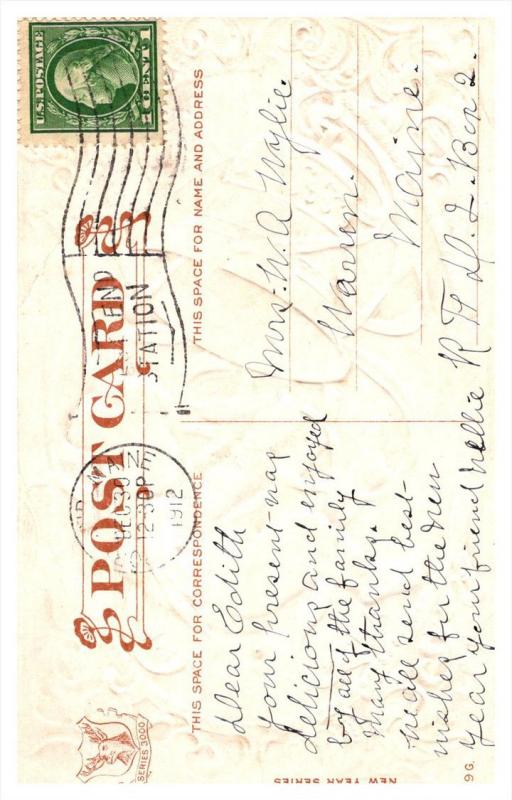 U.S. POSTAGE
1 CENT 1
POST CARD
DEC 30
12-30 PM
1912
STATION
SERIES 3000
THIS SPACE FOR CORRESPONDENCE
THIS SPACE FOR NAME AND ADDRESS
Dear Edith
your present was
delicious and enjoyed
by all of the family
Many thanks.
we all send best-
wishes for the New
Year your friend Nellie
Mrs. W. A Wylie.
Warren.
Maine.
R F D. 2. Box 2.
NEW YEAR SERIES
9G.